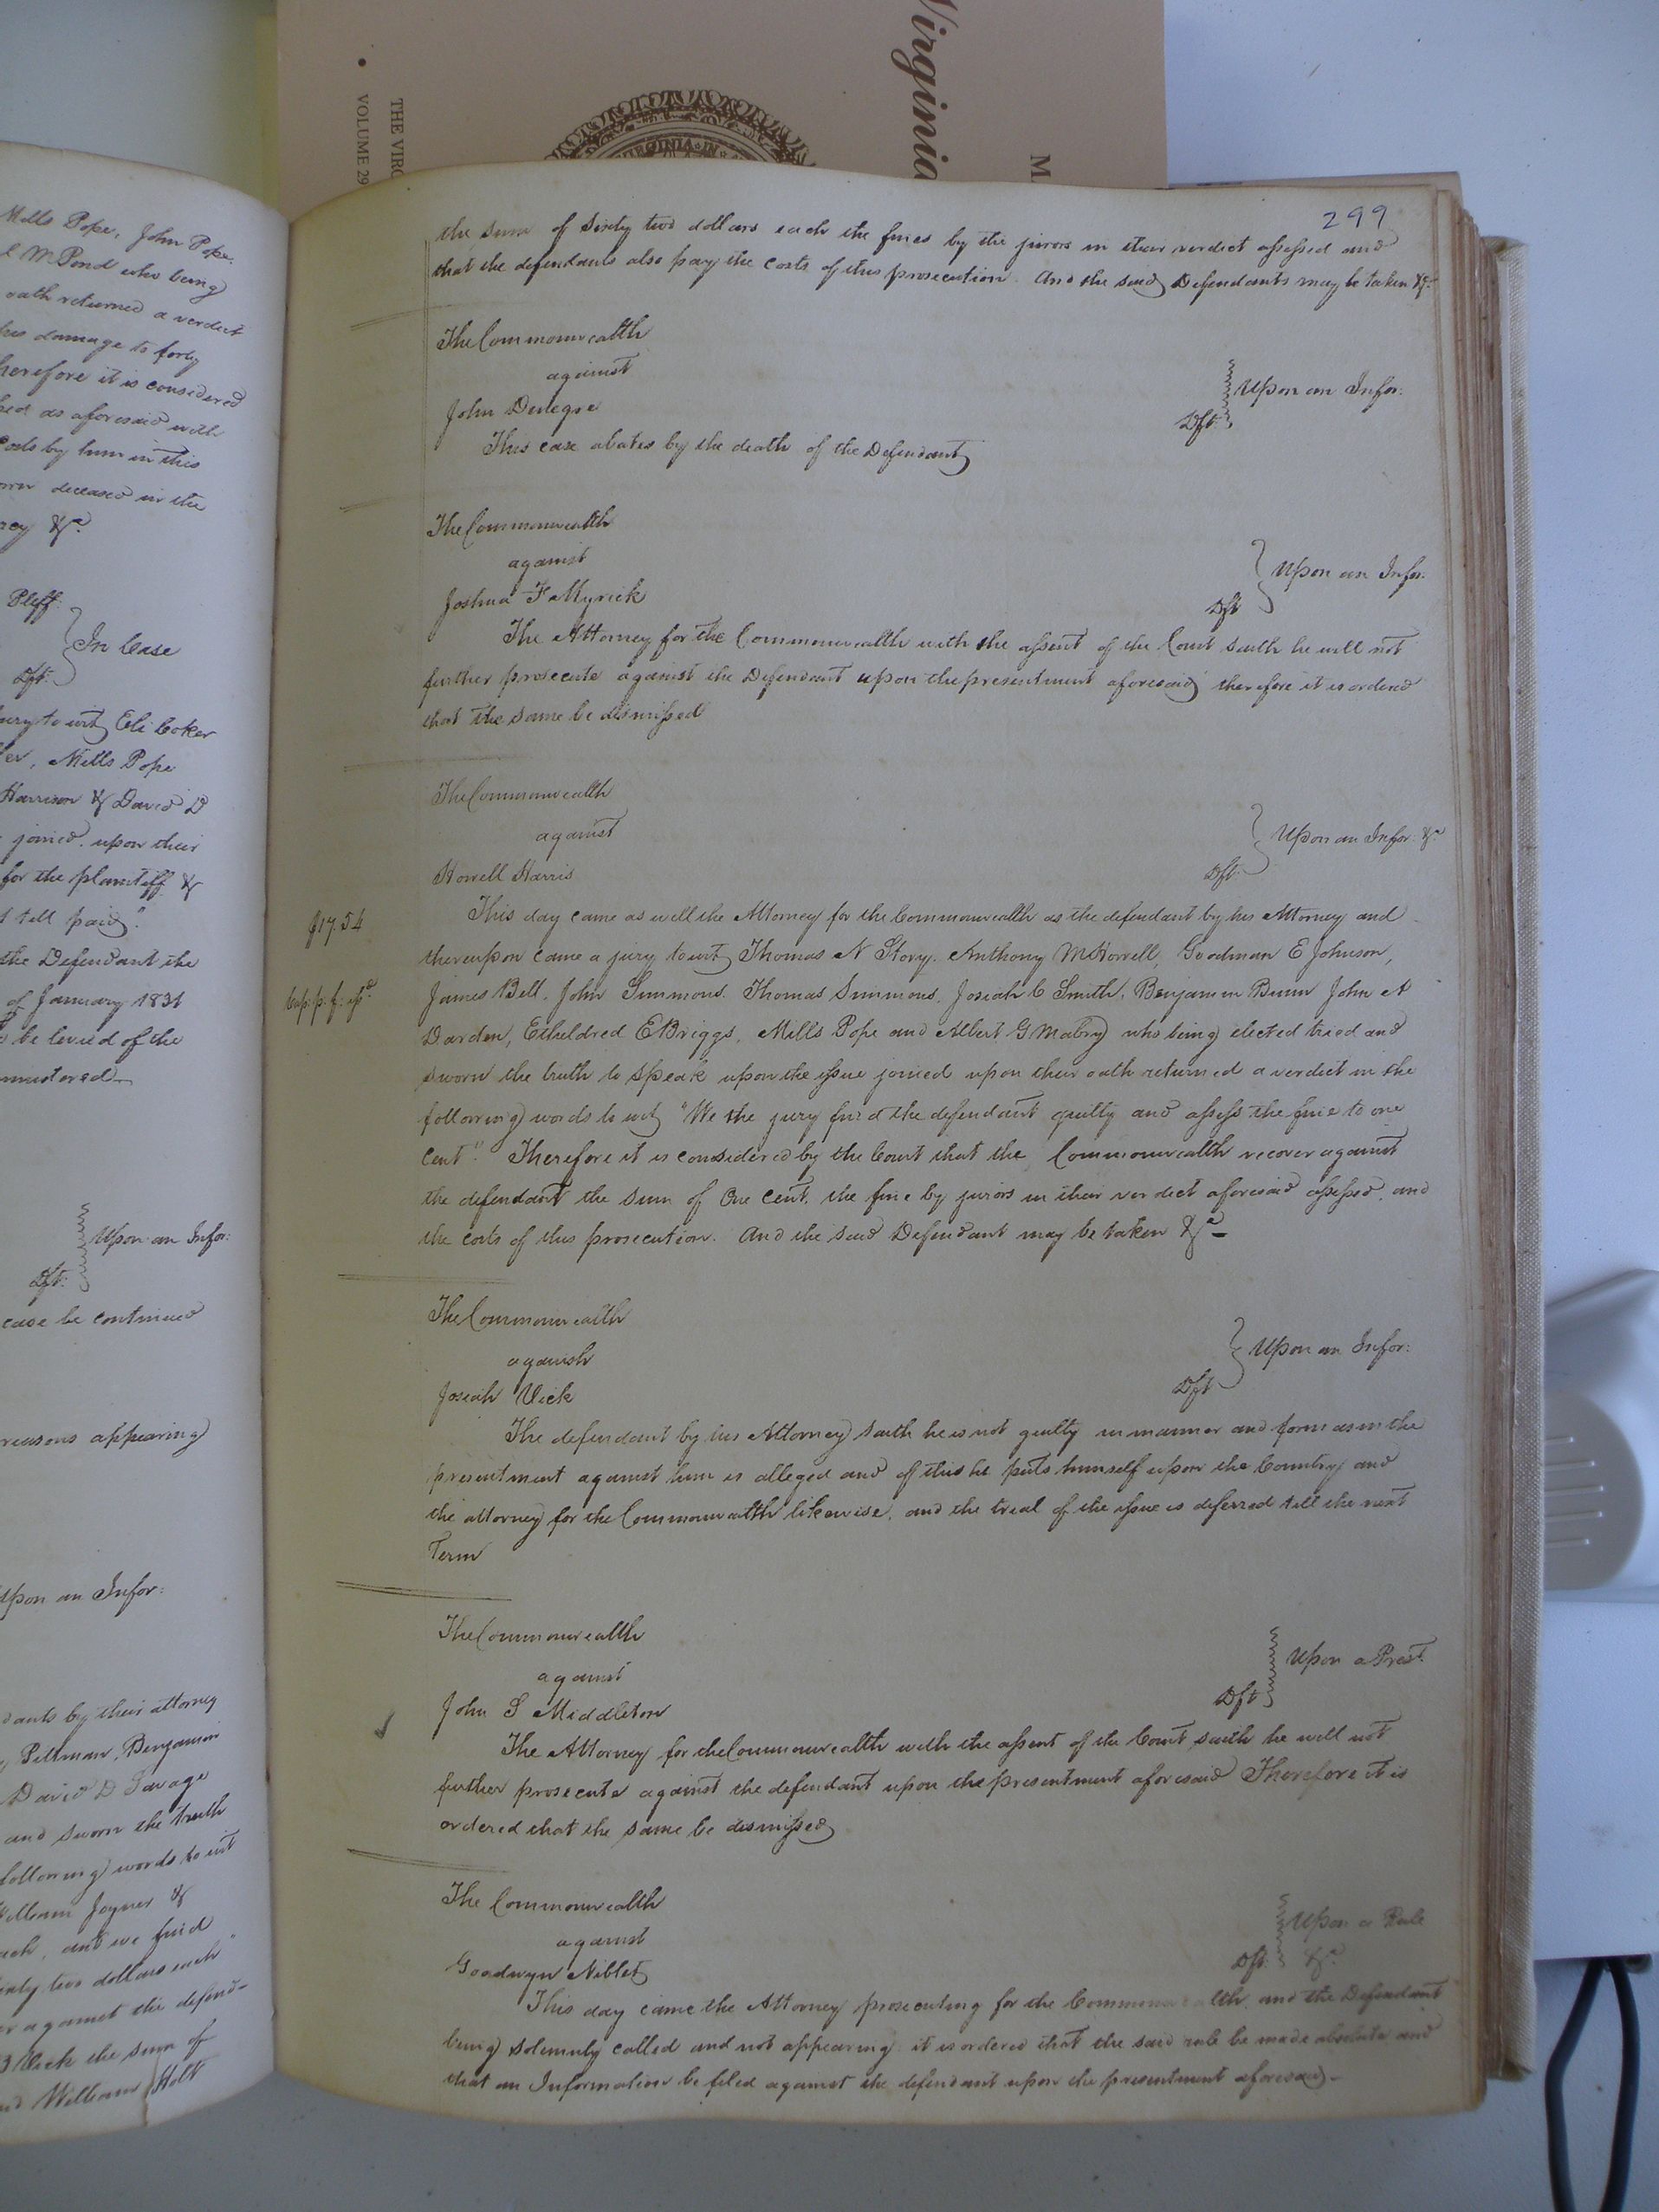 Virginia
M
THE VIRG
VOLUME 29
VIRGINIA IN
Mills Pope, John Pope
l M Pond who being
oath returned a verdict
his damage to forty
herefore it is considered
as aforesaid with
costs by him in this
deceased in the
&c.
Pltff.
In Case
Dft.
jury to wit, Eli Coker
er, Mills Pope
Harrison & David D
joined upon their
for the plaintiff &
till paid".
the Defendant the
of January 1831
be levied of the
Upon an Infor:
Dft:
case be continued
reasons appearing
Upon an Infor:
dants by their attorney
Pittman, Benjamin
David D Savage
and sworn the truth
following words to wit
William Joyner &
each, and we find
two dollars each"
r against the defend-
the sum of
and William Holt
299
the sum of Sixty two dollars each the fines by the jurors in their verdict assessed and
that the defendants also pay the costs of this prosecution. And the said Defendants may be taken &c.
The Commonwealth
against
Upon an Infor:
John Denegre
Dft:
This case abates by the death of the Defendant
The Commonwealth
against
Upon an Infor.
Joshua F Myrick
Dft
The Attorney for the Commonwealth with the assent of the Court saith he will not
further prosecute against the Defendant upon the presentment aforesaid therefore it is ordered
that the same be dismissed
The Commonwealth
against
Upon an Infor: &c
Howell Harris
Dft.
$17.54
This day came as well the Attorney for the Commonwealth as the defendant by his Attorney and
thereupon came a jury towit, Thomas N Story, Anthony M Howell, Goodman E Johnson,
James Bell, John Simmons, Thomas Simmons, Josiah C Smith, Benjamin Bunn John A
Darden, Etheldred E Briggs, Mills Pope and Albert G Mabry who being elected tried and
sworn the truth to speak upon the issue joined upon their oath returned a verdict in the
following words to wit, "We the jury find the defendant guilty and assess the fine to one
Cent". Therefore it is considered by the Court that the Commonwealth recover against
the defendant the sum of One Cent, the fine by jurors in their verdict aforesaid assessed, and
the costs of this prosecution. And the said Defendant may be taken &c
The Commonwealth
against
Upon an Infor:
Josiah Vick
Dft
The defendant by his Attorney saith he is not guilty in manner and form as in the
presentment against him is alleged and of this he puts himself upon the Country and
the attorney for the Commonwealth likewise, and the trial of the issue is deferred till the next
Term
The Commonwealth
against
Upon a Prest.
John S Middleton
Dft
The Attorney for the Commonwealth with the assent of the Court saith he will not
further prosecute against the defendant upon the presentment aforesaid Therefore it is
ordered that the same be dismissed
The Commonwealth
against
Upon a Rule
&c.
Goodwyn Niblet
Dft.
This day came the Attorney prosecuting for the Commonwealth and the Defendant
being solemnly called and not appearing it is ordered that the said rule be made absolute and
that an Information be filed against the defendant upon the presentment aforesaid.